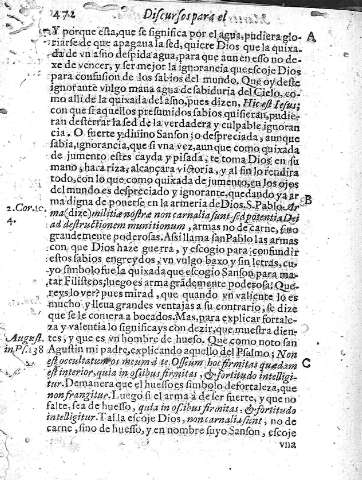 472 Discursos para el
Y porque esta, que se significa por el agua, pudiera glo- A
riarse de que apagaua la sed, quiere Dios que la quixa-
da de vn asno despida agua, para que aun en esso no de-
xe de vencer, y ser mejor la ignorancia que escoje Dios
para confusion de los sabios del mundo. Que oy deste
ignorante vulgo mana agua de sabiduria del Cielo, co-
mo alli de la quixada del asno, pues dizen, Hic est Iesus;
con que si aquellos presumidos sabios quisieran, pudie-
ran desterrar la sed de la verdadera y culpable ignoran
cia. O fuerte y diuino Sanson! o despreciada, aunque
sabia, ignorancia, que si vna vez, aun que como quixada
de jumento estes cayda y pisada, te toma Dios en su
mano, hara riza, alcançara victoria, y al fin lo rendira
todo, con lo que como quixada de jumento, en los ojos
del mundo es despreciado y ignorante, quedando ya ar B
ma digna de ponerse en la armeria de Dios. S. Pablo. Ar
2. Cor. 10. ma (dize) militiæ nostræ non carnalia sunt, sed potentia Dei
4. ad destructionem munitionum, armas no de carne, sino
grandemente poderosas. Assi llama san Pablo las armas
con que Dios haze guerra, y escogio para confundir
estos sabios engreydos, vn vulgo baxo y sin letras, cu-
yo simbolo fue la quixada que escogio Sanson para ma-
tar Filisteos; luego es arma grãdemente poderosa: Que-
reys lo ver? pues mirad, que quando vn valiente lo es
mucho y lleua grandes ventajas a su contrario, se dize
que se le comera a bocados. Mas, para explicar fortale-
za y valentia lo significays con dezir, que muestra dien-
August. tes, y que es vn hombre de hueso. Que como noto san
in Ps. 138 Agustin mi padre, explicando aquello del Psalmo; Non
est occultatum os meum à te. Ossium hoc firmitas quædam C
est interior, quia in ossibus firmitas, & fortitudo intelligi-
tur. De manera que el huesso es simbolo de fortaleza, que
non frangitur. Luego si el arma à de ser fuerte, y que no
falte, sea de huesso, quia in ossibus firmitas, & fortitudo
intelligitur. Tal la escoje Dios, non carnalia sunt, no de
carne, sino de huesso, y en nombre suyo Sanson, escoje
vna